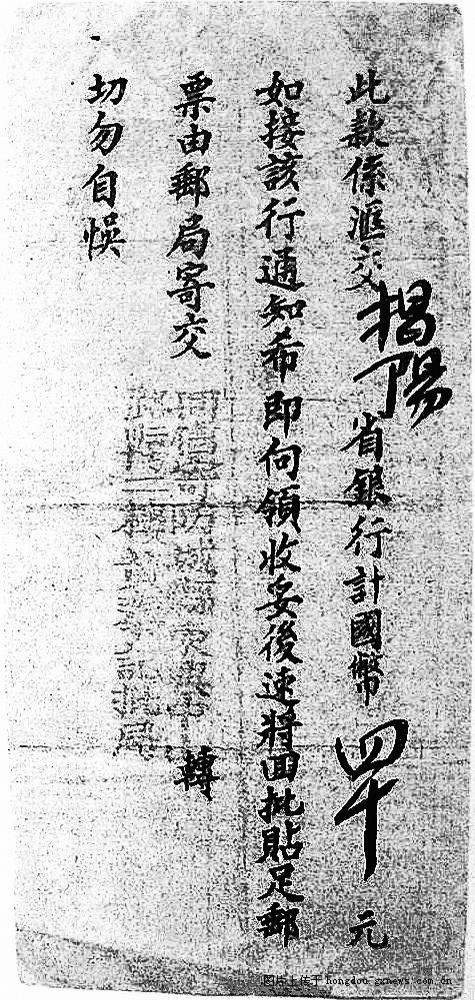 此款係滙交揭陽省銀行計國幣四十元
如接該行通知希即向領收妥後速將回批貼足郵
票由郵局寄交
轉
切勿自悞
图片上传于 hongdou.gxnews.com.cn